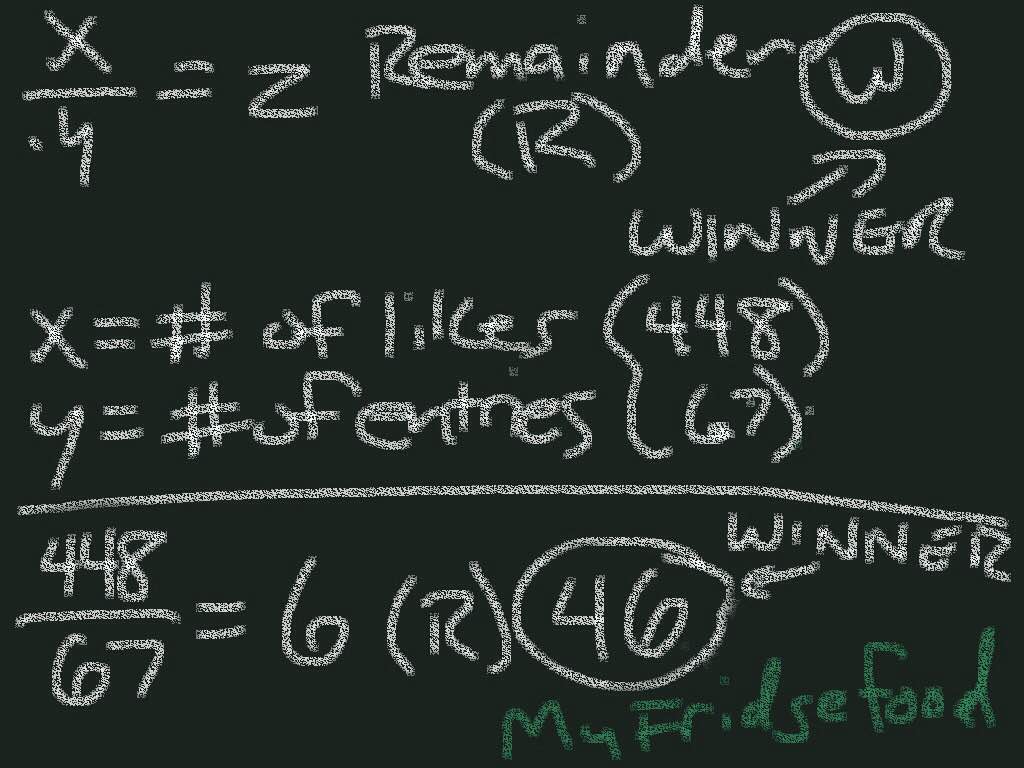 x/y = z Remainder (R) W
WINNER
x = # of likes (448)
y = # of entries (67)
448/67 = 6 (R) 46 WINNER
MyFridgefood